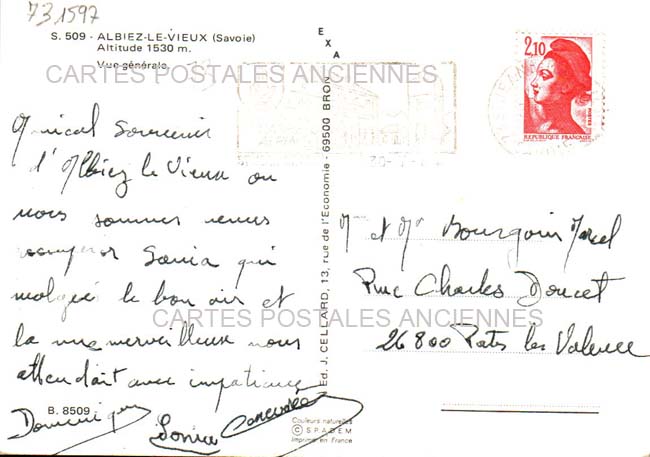 731597
S. 509 - ALBIEZ-LE-VIEUX (Savoie)
Altitude 1530 m.
Vue générale
CARTES POSTALES ANCIENNES
Amical Souvenir
d'Albiez le Vieux ou
nous sommes venus
Sonia qui
malgré le bon air et
la vue merveilleuse nous
attendait avec impatience
Dominique Sonia
B. 8509
EXA
Ed. J. CELLARD, 13, rue de l'Economie - 69500 BRON
Couleurs naturelles
© SPADEM
Imprimé en France
2,10
REPUBLIQUE FRANÇAISE
POSTES
M et Me Bourgoin Marcel
Rue Charles Doucet
26800 Portes les Valence
CARTES POSTALES ANCIENNES